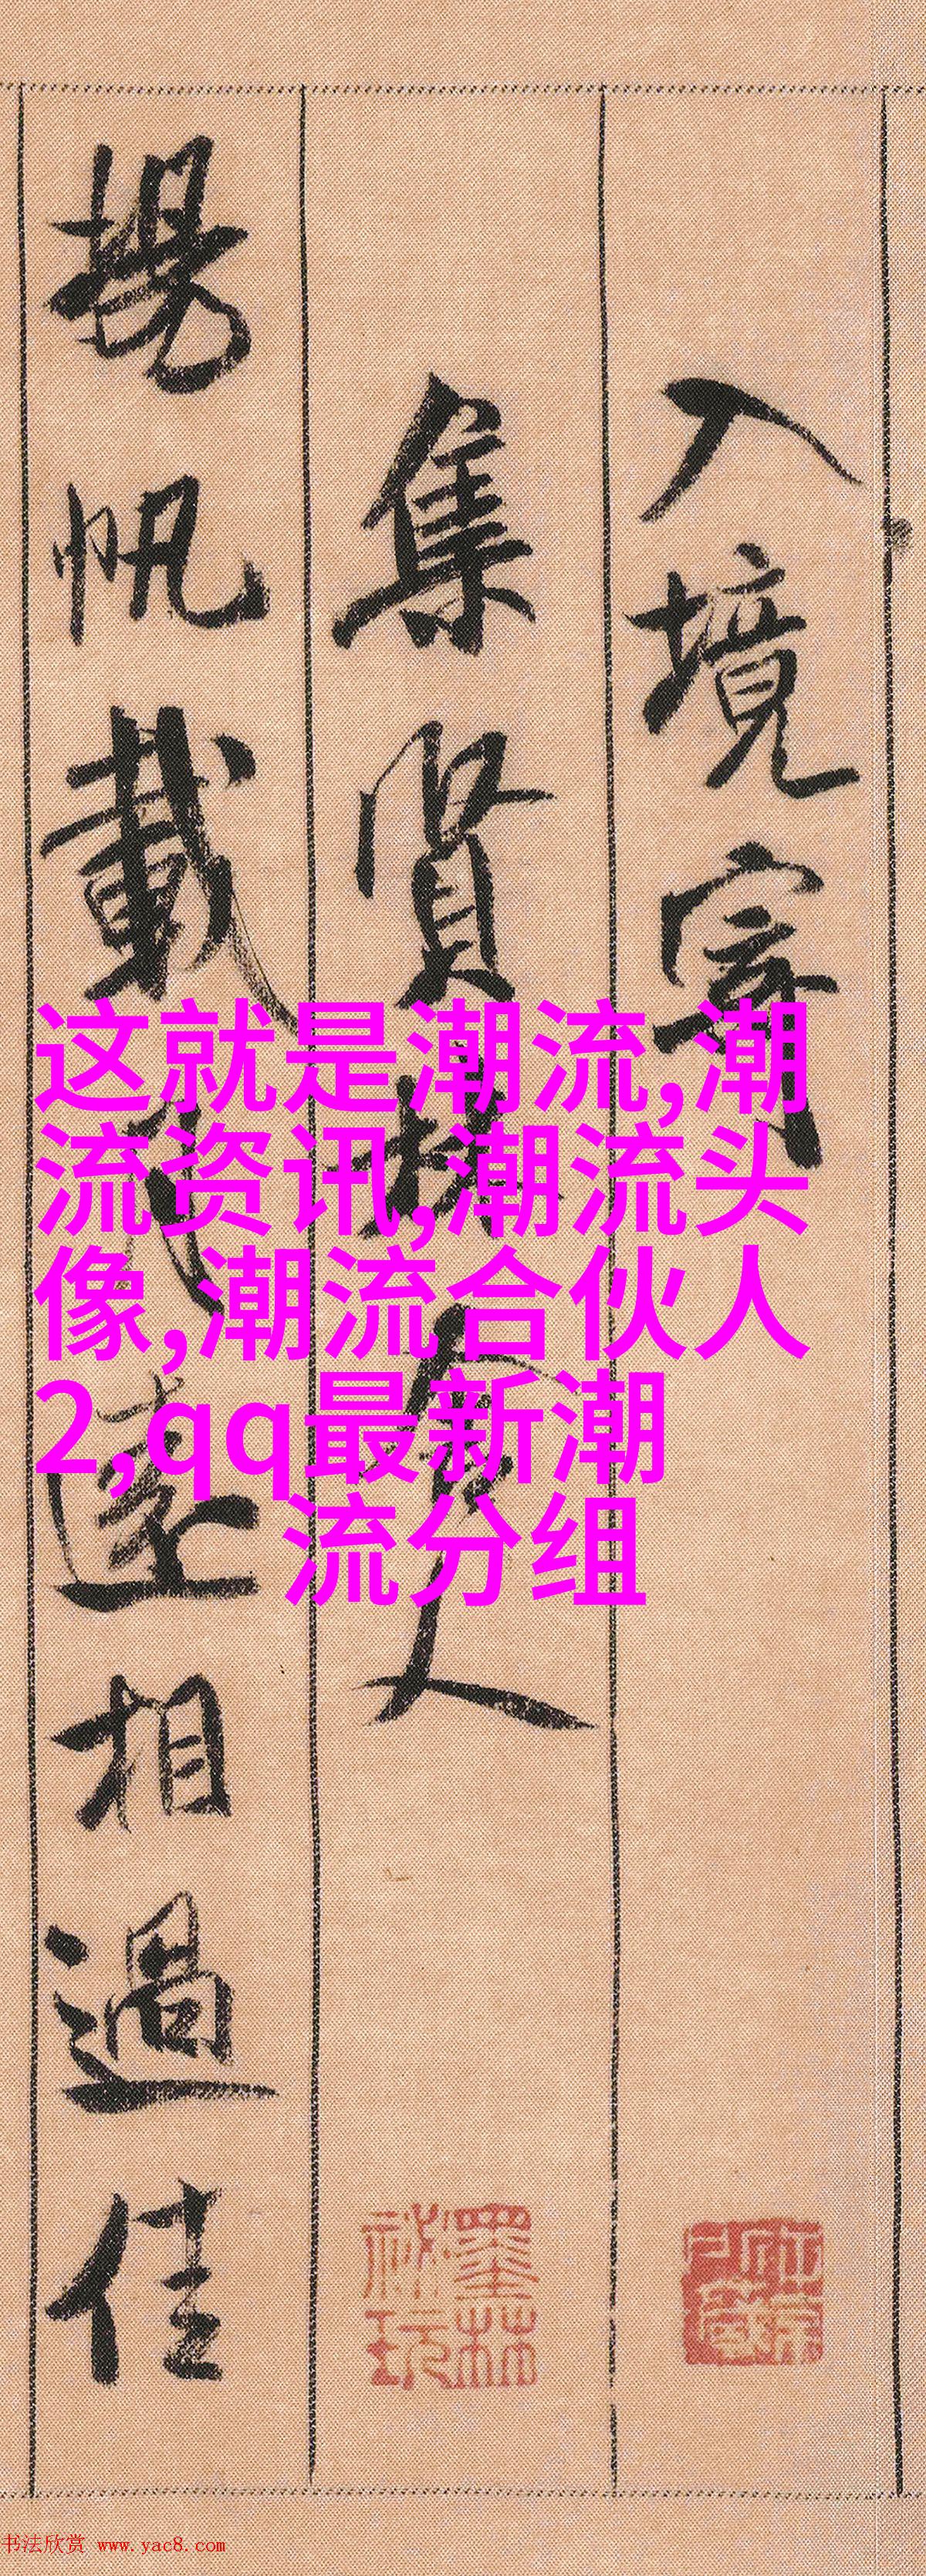 入境寄
集賢林舍人
揚帆載月遠相過佳
这就是潮流,潮
流资讯,潮流头
像,潮流合伙人
2,qq最新潮
流分组
墨林
秘玩
书法欣赏 www.yac8.com